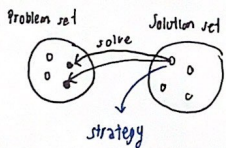 Problem set
Solution set
solve
strategy